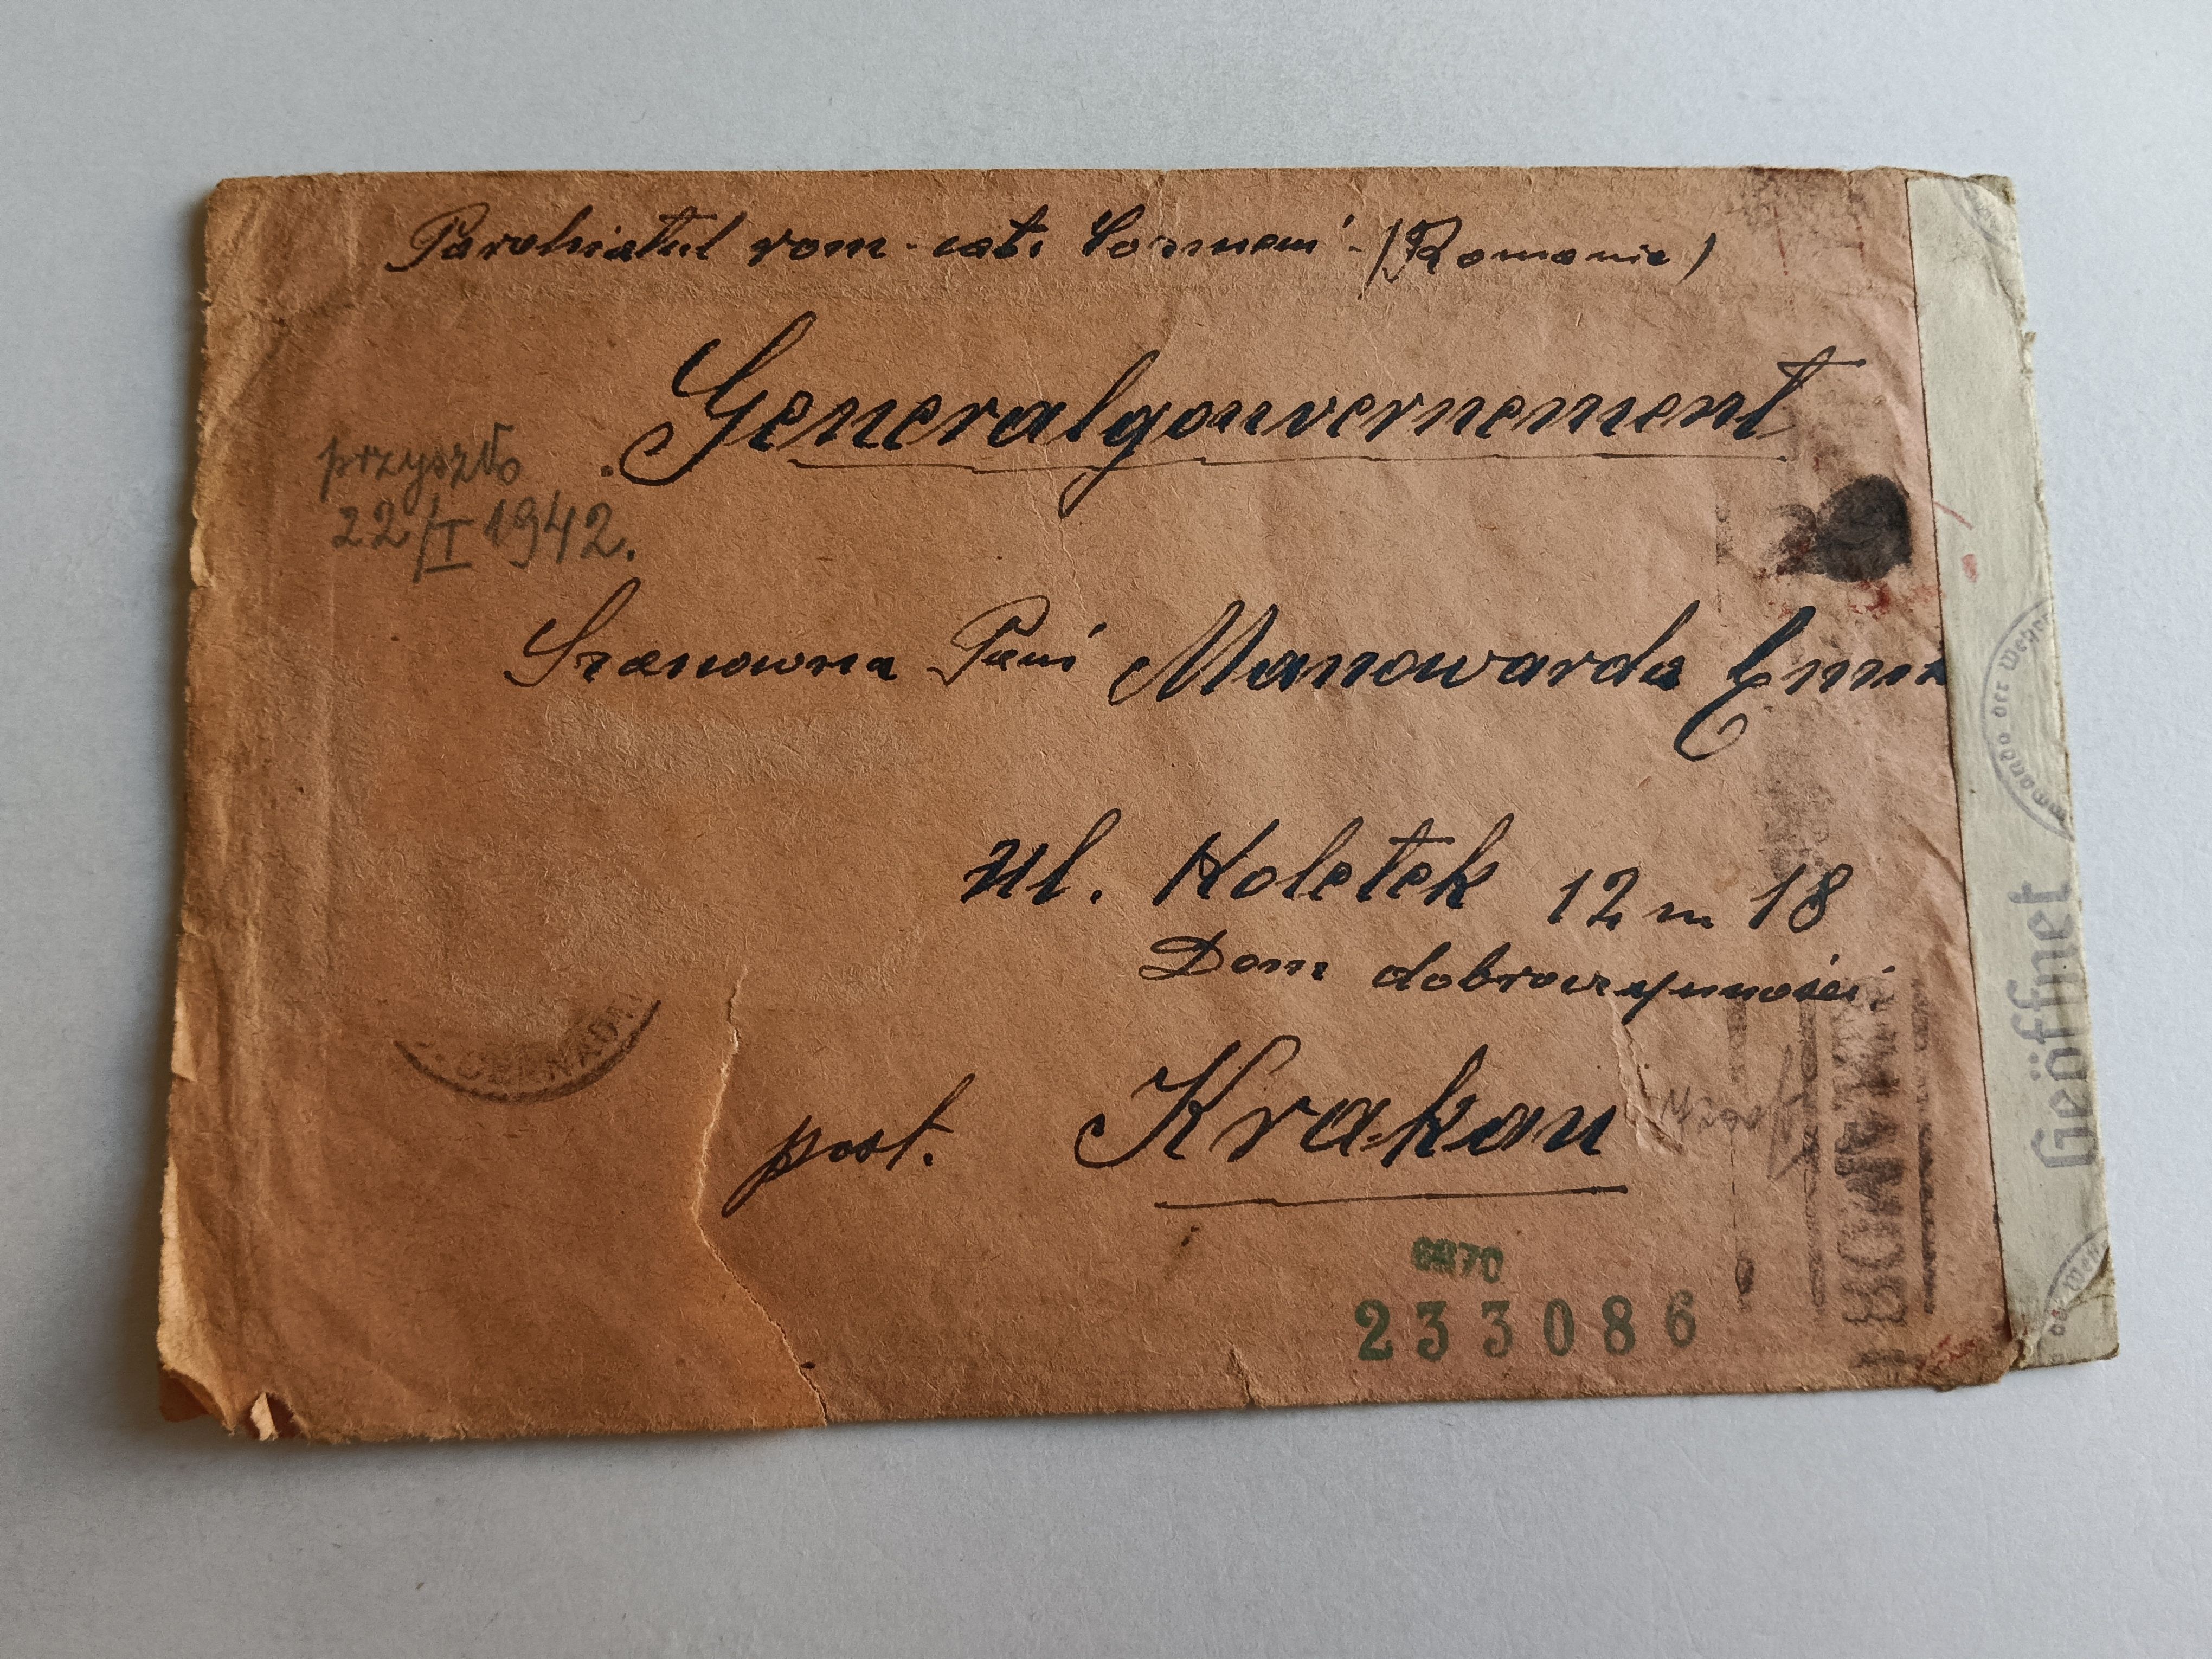 Parohiatul rom. cat. Cozmeni - (Romania)
Generalgouvernement
przyszło
22/I 1942.
Szanowna Pani Manowarda
ul. Koletek 12 m 18
Dom dobroczynności
post. Krakau
233086
Geöffnet